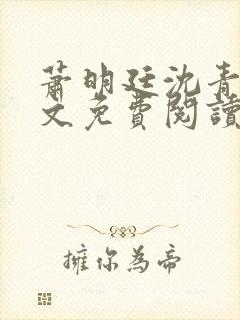 蕭明廷沈青
文免費閱讀
擁你為帝